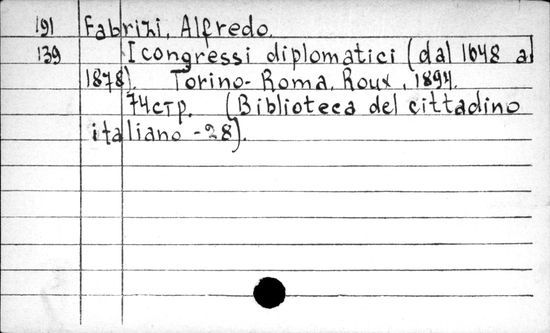 191 Fabrizi, Alfredo.
139 I congressi diplomatici (dal 1648 al
1878). Torino-Roma, Roux, 1894.
74 стр. (Biblioteca del cittadino
italiano - 28).